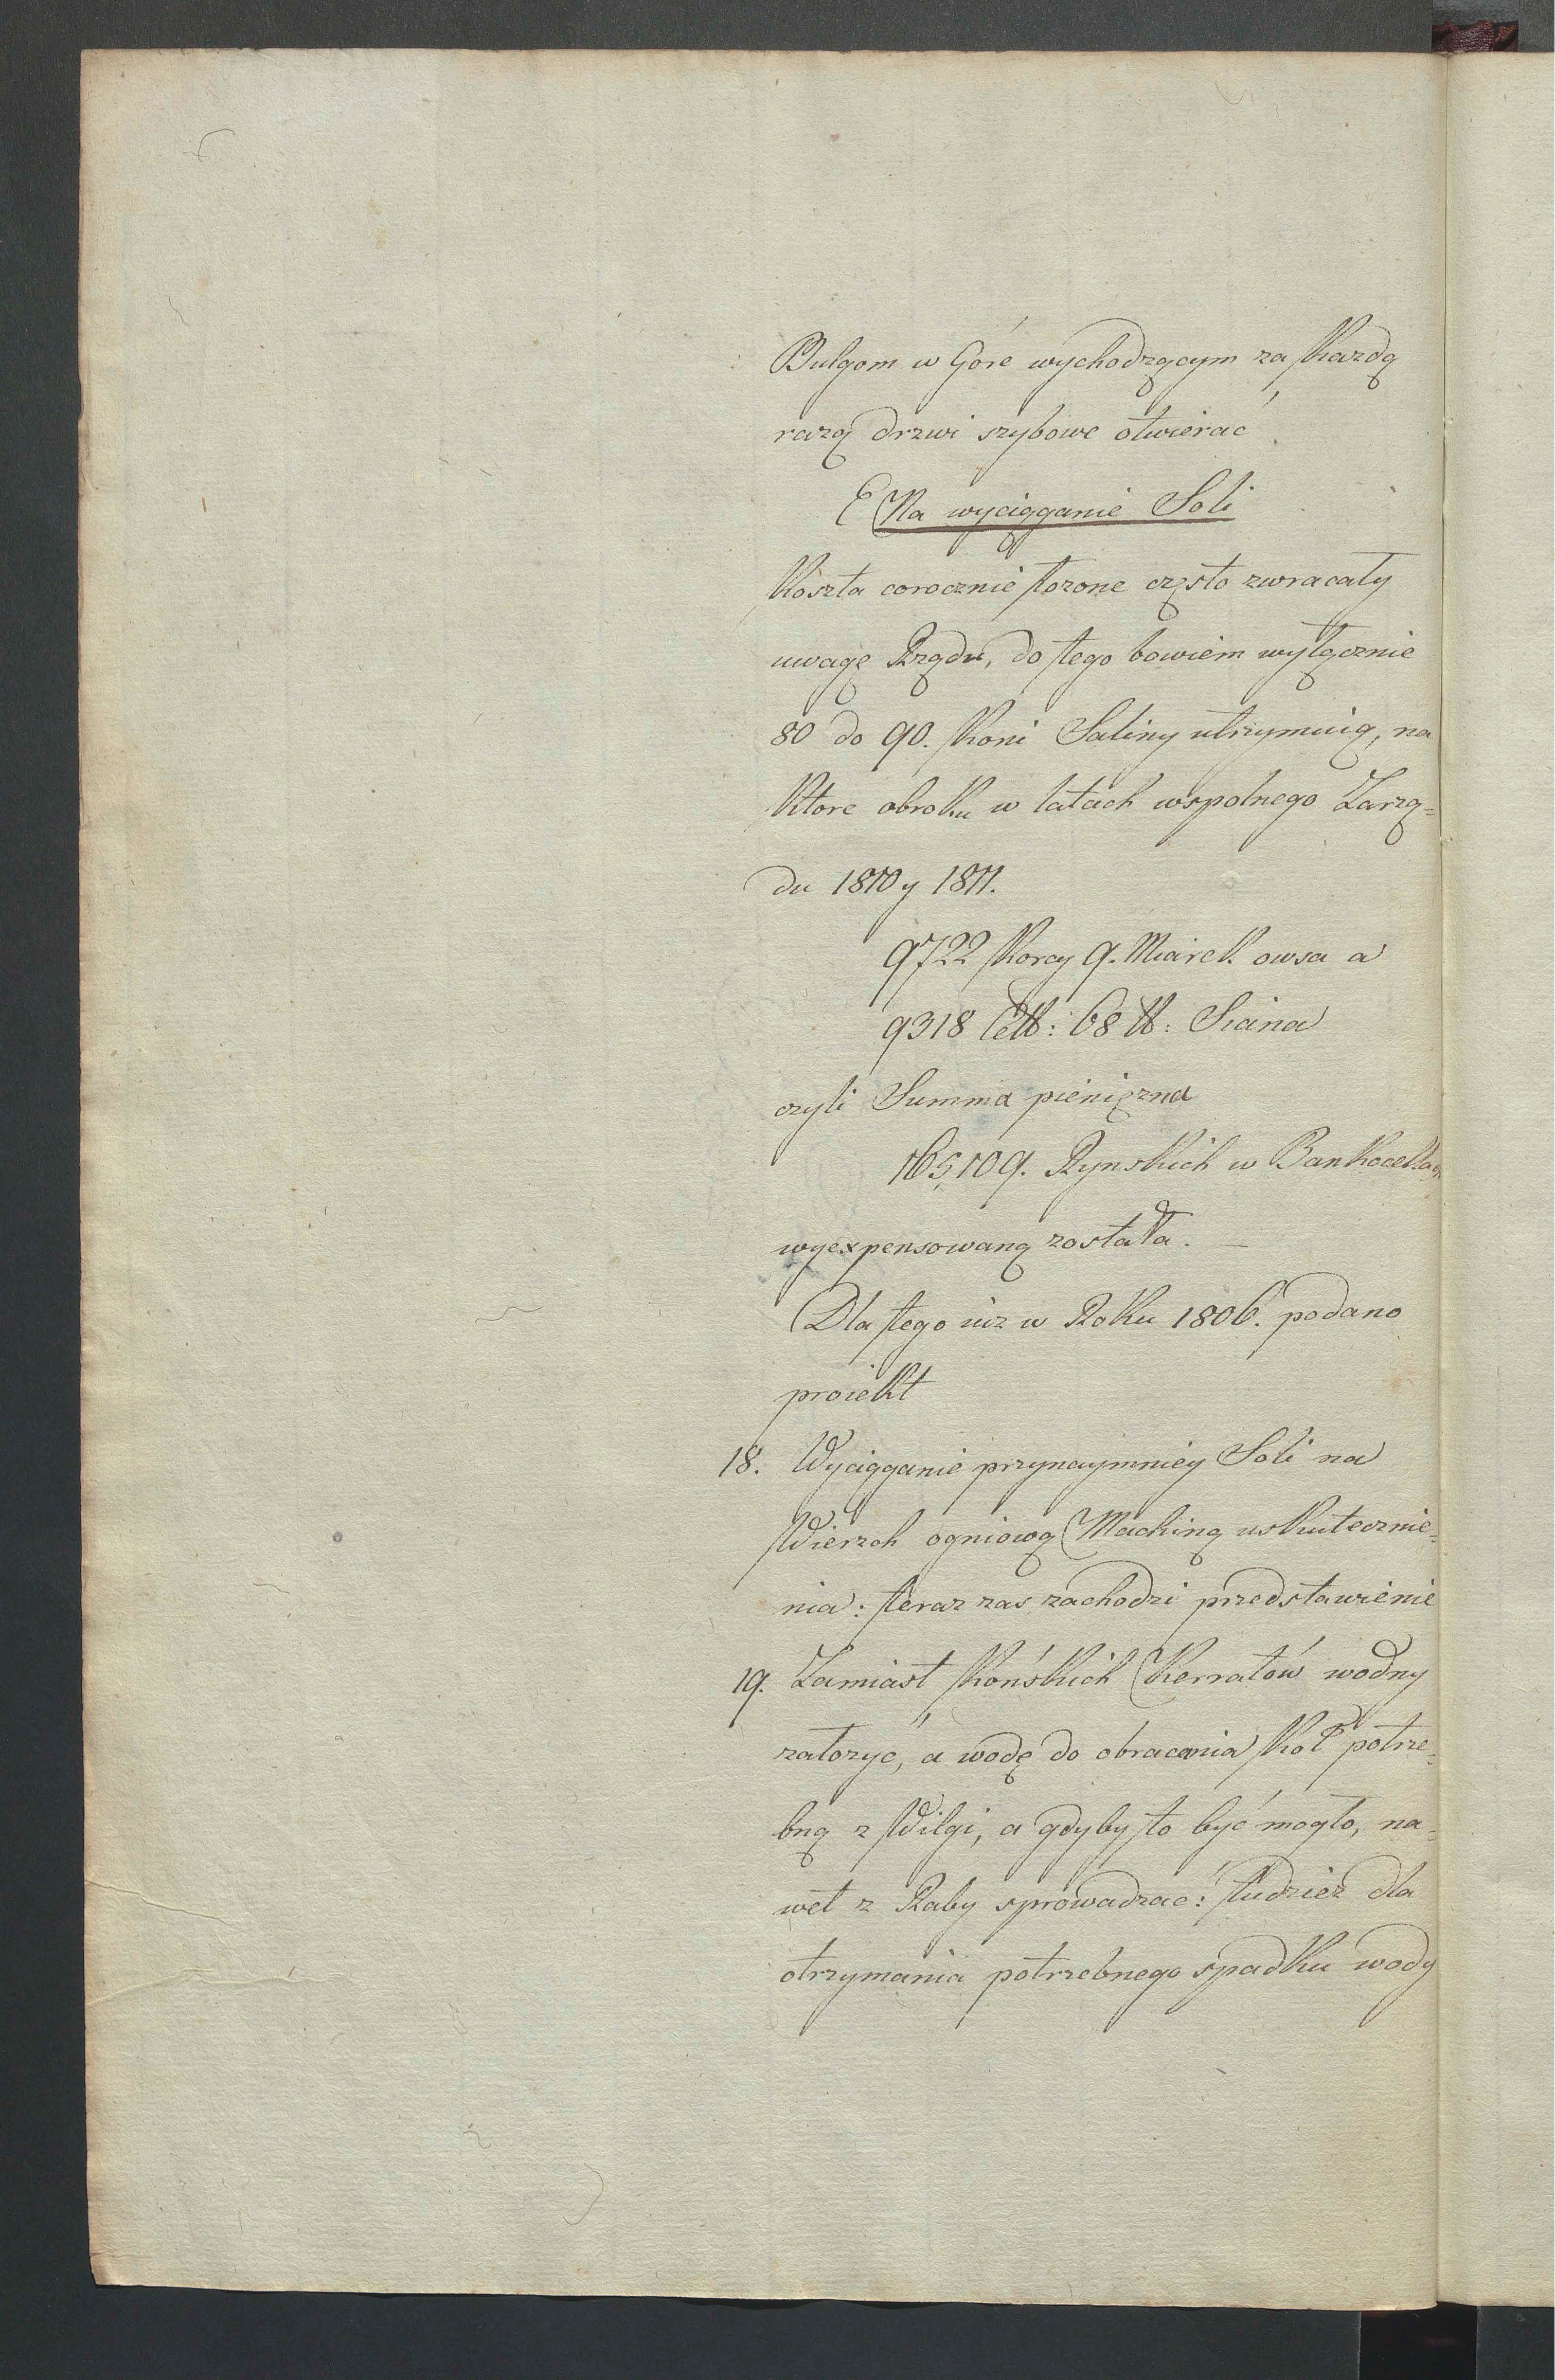 Bulgom w Góre wychodzącym za każdą
razą drzwi szybowe otwierać
E Na wyciąganie Soli
Koszta corocznie łozone często zwracały
uwagę Rządu, do tego bowiem wyłącznie
80 do 90. koni Saliny utrzymuią, na
ktore obroku w latach wspolnego Zarzą=
du 1810 y 1811.
9722 korcy 9. Miarek owsa a
9318 Cet℔: 68 ℔: Siana
czyli Summa pieniężna
165,109. Rynskich w Bankocetlach
wyexpensowaną została. —
Dla tego iuz w Roku 1806. podano
proiekt
18. Wyciąganie przynaymniey Soli na
Wierzch ogniową Machiną uskutecznie=
nia: teraz zas zachodzi przedstawienie
19. Zamiast końskich Kerratów wodny
założyć, a wodę do obracania koł potrze=
bną z Wilgi, a gdyby to być mogło, na=
wet z Raby sprowadzac: tudziez dla
otrzymania potrzebnego spadku wody